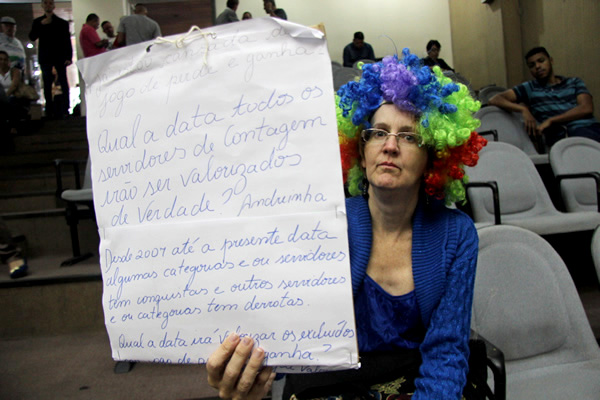 categoria
jogo de perde e ganha
Qual a data todos os
servidores de Contagem
irão ser valorizados
de Verdade?
Andreinha
Desde 2007 até a presente data
algumas categorias e ou servidores
tem conquistas e outros servidores
e ou categorias tem derrotas.
Qual a data irá valorizar os excluídos
ganha?